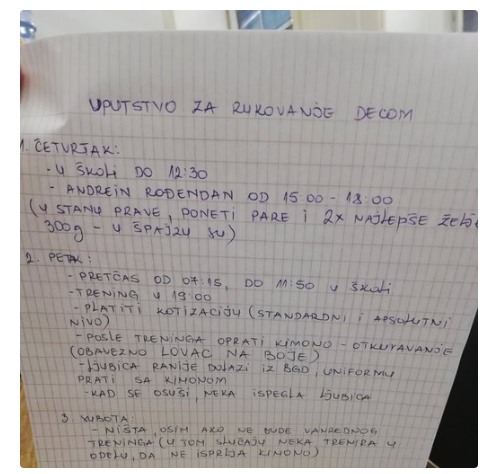 UPUTSTVO ZA RUKOVANJE DECOM
1. ČETVRTAK:
- U ŠKOLI DO 12:30
- ANDREIN ROĐENDAN OD 15:00 - 18:00
(U STANU PRAVE, PONETI PARE I 2X NAJLEPŠE ŽELJE
300g - U ŠPAJZU SU)
2. PETAK:
- PRETČAS OD 07:15, DO 11:50 U ŠKOLI
- TRENING U 19:00
- PLATITI KOTIZACIJU (STANDARDNI I APSOLUTNI
NIVO)
- POSLE TRENINGA OPRATI KIMONO - OTKUVAVANJE
(OBAVEZNO LOVAC NA BOJE)
- LJUBICA RANIJE DOLAZI IZ BGD, UNIFORMU
PRATI SA KIMONOM
- KAD SE OSUŠI NEKA ISPEGLA LJUBICA
3. SUBOTA:
- NIŠTA, OSIM AKO NE BUDE VANREDNOG
TRENINGA (U TOM SLUČAJU NEKA TRENIRA U
ODELU, DA NE ISPRLJA KIMONO)